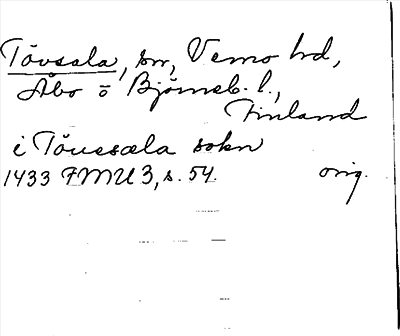 Tövsala, sn, Vemo hd,
Åbo o Björneb. l.,
Finland
i Töuesæla sokn
1433 FMU 3, s. 54. orig.